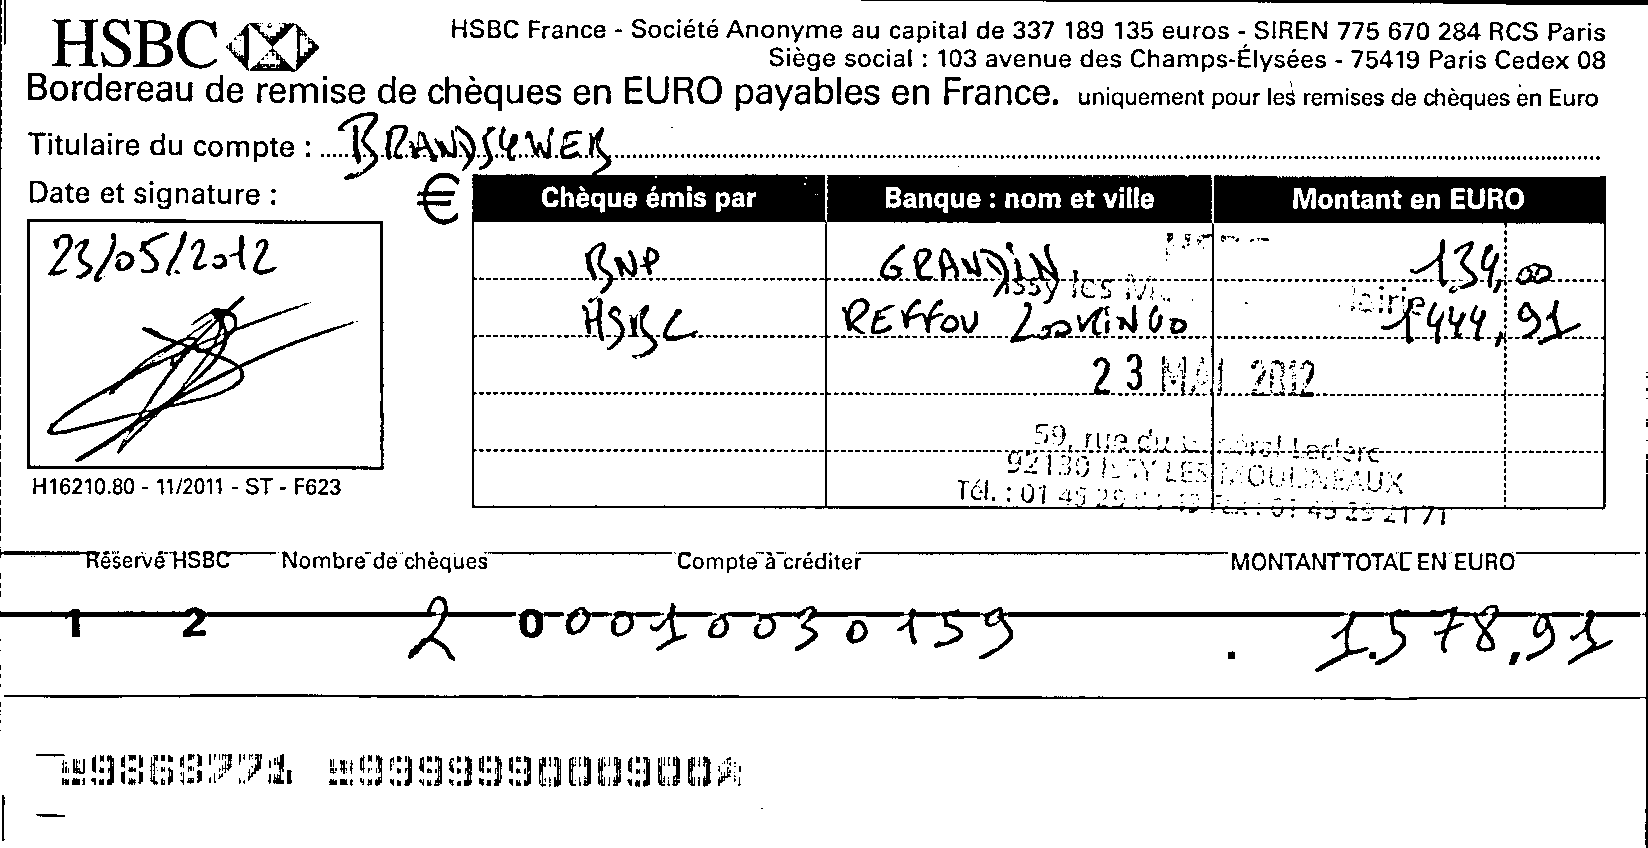 HSBC
HSBC France - Société Anonyme au capital de 337 189 135 euros - SIREN 775 670 284 RCS Paris
Siège social : 103 avenue des Champs-Élysées - 75419 Paris Cedex 08
Bordereau de remise de chèques en EURO payables en France. uniquement pour les remises de chèques en Euro
Titulaire du compte : BRANDSYWEB
Date et signature : € Chèque émis par Banque : nom et ville Montant en EURO
23/05/2012
BNP GRANDIN 134,00
HSBC REFFOU 1444,91
23 MAI 2012
59, rue du Général Leclerc
92130 ISSY LES MOULINEAUX
H16210.80 - 11/2011 - ST - F623
Tél. : 01 45 29
01 45 29 21 71
Réservé HSBC Nombre de chèques Compte à créditer MONTANT TOTAL EN EURO
1 2 2 00010030159 1.578,91
9868771 99999990009000